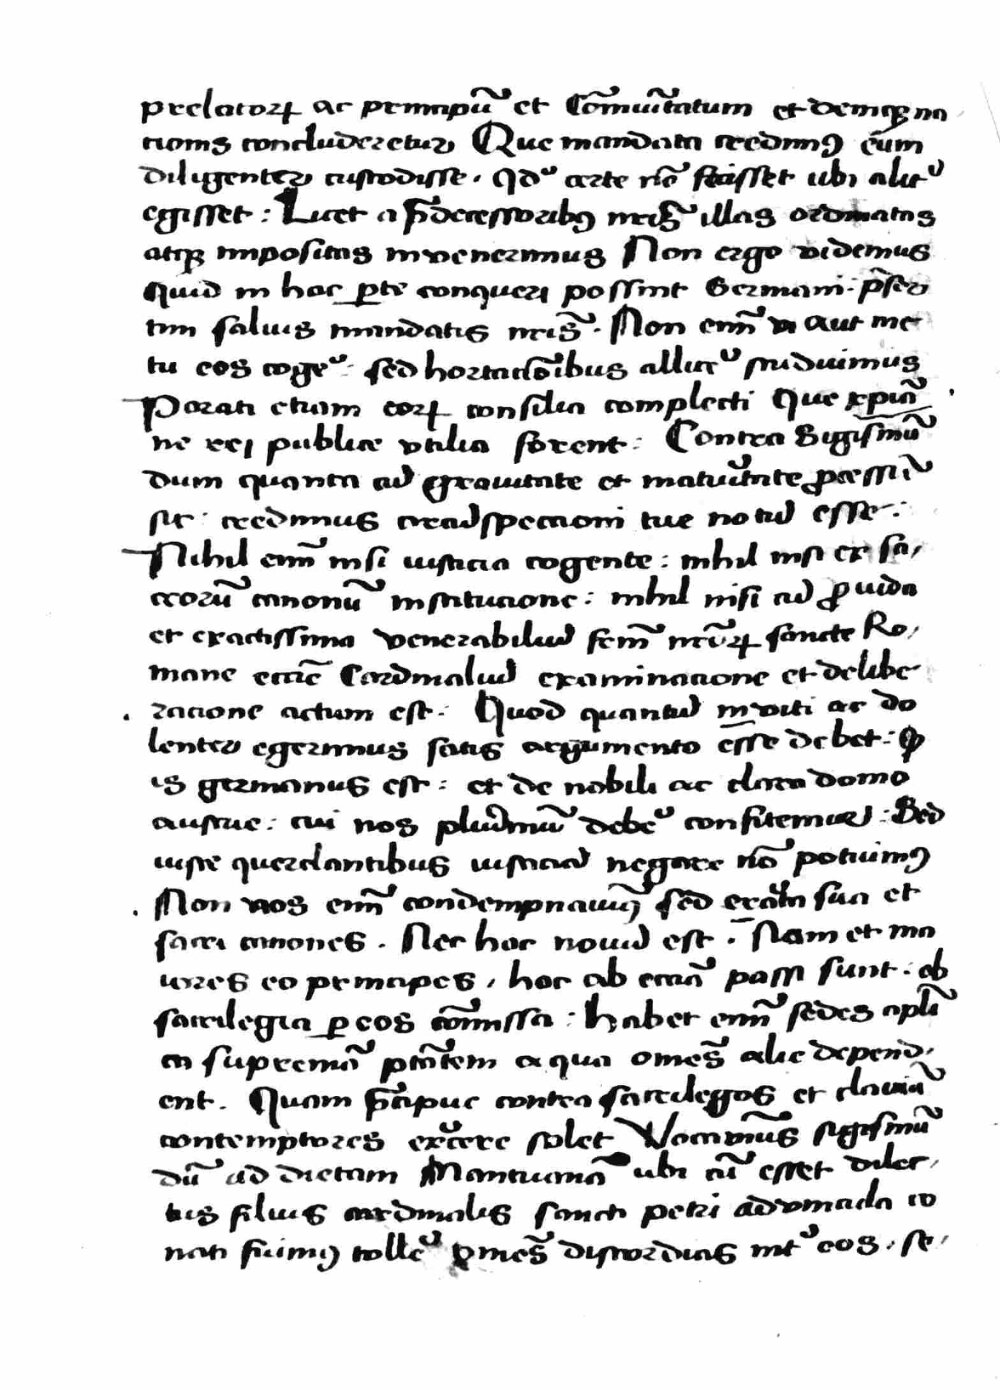 prelatoꝝ ac principũ et Com̃uĩtatum et deniqꝫ na
cionis concluderetur Que mandata credimꝰ eũm
diligenter custodisse · qđ certe nõ fecisset ubi alit᷑
egisset : Licet a p̃decessoribꝰ nr̃is illas ordinatas
atqꝫ impositas invenerimus Non ergo videmus
quid in hac ꝑte conqueri possint Germani · p̃ser
tim salvis mandatis nr̃is · Non em̃ vi aut me
tu eos coge᷑ · sed hortacõibus allice᷑ studuimus
Parati etiam eoꝝ consilia complecti Que xp̃ia
ne rei publice utilia forent : Contra Sigismũ
dum quanta cũ gravitate et maturĩtate ꝓcessũ
sit · credimus circũspectioni tue notũ esse ·
Nihil em̃ nisi iusticia cogente : nihil nisi ex sa
crorũ canonũ institucione : nihil nisi cũ ꝓvida
et exactissima venerabiliũ frm̃ nr̃oꝝ sancte Ro
mane eccĩe Cardinaliũ examinacione et delibe
racione actum est · Quod quantũ inviti ac do
lenter egerimus satis argumento esse debet : qꝫ
is germanus est : et de nobili ac clara domo
austrie : cui nos plurimũ debe᷑ confitemur : Sed
iuste querelantibus iusticiã negare nõ potuimꝰ
Non nos em̃ condempnavimꝰ sed errata sua et
sacri canones · Nec hoc novũ est · Nam et ma
iores eo principes · hoc ab eccĩa passi sunt · ob
sacrilegia ꝑ eos com̃issa : habet em̃ sedes apl̃i
ca supremã ptãtem a qua om̃es alie depend
ent · Quam p̃cipue contra sacrilegos et claviũ
contemptores ex̃cere solet Vocavim̃us sigismũ
dũ ad dietam Mantuanã ubi cũ esset dilec
tus filius cardinalis sancti petri ad vincula co
nati fuimꝰ tolle᷑ om̃es discordias int᷑ eos · se